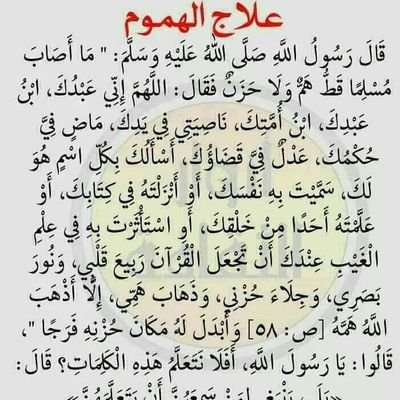 علاج الهموم
قَالَ رَسُولُ اللَّهِ صَلَّى اللهُ عَلَيْهِ وَسَلَّمَ: " مَا أَصَابَ
مُسْلِمًا قَطُّ هَمٌّ وَلَا حَزَنٌ فَقَالَ: اللَّهُمَّ إِنِّي عَبْدُكَ، ابْنُ
عَبْدِكَ، ابْنُ أَمَتِكَ، نَاصِيَتِي فِي يَدِكَ، مَاضٍ فِيَّ
حُكْمُكَ، عَدْلٌ فِيَّ قَضَاؤُكَ، أَسْأَلُكَ بِكُلِّ اسْمٍ هُوَ
لَكَ، سَمَّيْتَ بِهِ نَفْسَكَ، أَوْ أَنْزَلْتَهُ فِي كِتَابِكَ، أَوْ
عَلَّمْتَهُ أَحَدًا مِنْ خَلْقِكَ، أَوِ اسْتَأْثَرْتَ بِهِ فِي عِلْمِ
الْغَيْبِ عِنْدَكَ أَنْ تَجْعَلَ الْقُرْآنَ رَبِيعَ قَلْبِي، وَنُورَ
بَصَرِي، وَجِلَاءَ حُزْنِي، وَذَهَابَ هَمِّي، إِلَّا أَذْهَبَ
اللَّهُ هَمَّهُ [ص: ٥٨] وَأَبْدَلَ لَهُ مَكَانَ حُزْنِهِ فَرَجًا "،
قَالُوا: يَا رَسُولَ اللَّهِ، أَفَلَا نَتَعَلَّمُ هَذِهِ الْكَلِمَاتِ؟ قَالَ:
«بَلَى، يَنْبَغِي لِمَنْ سَمِعَهُنَّ أَنْ يَتَعَلَّمَهُنَّ»